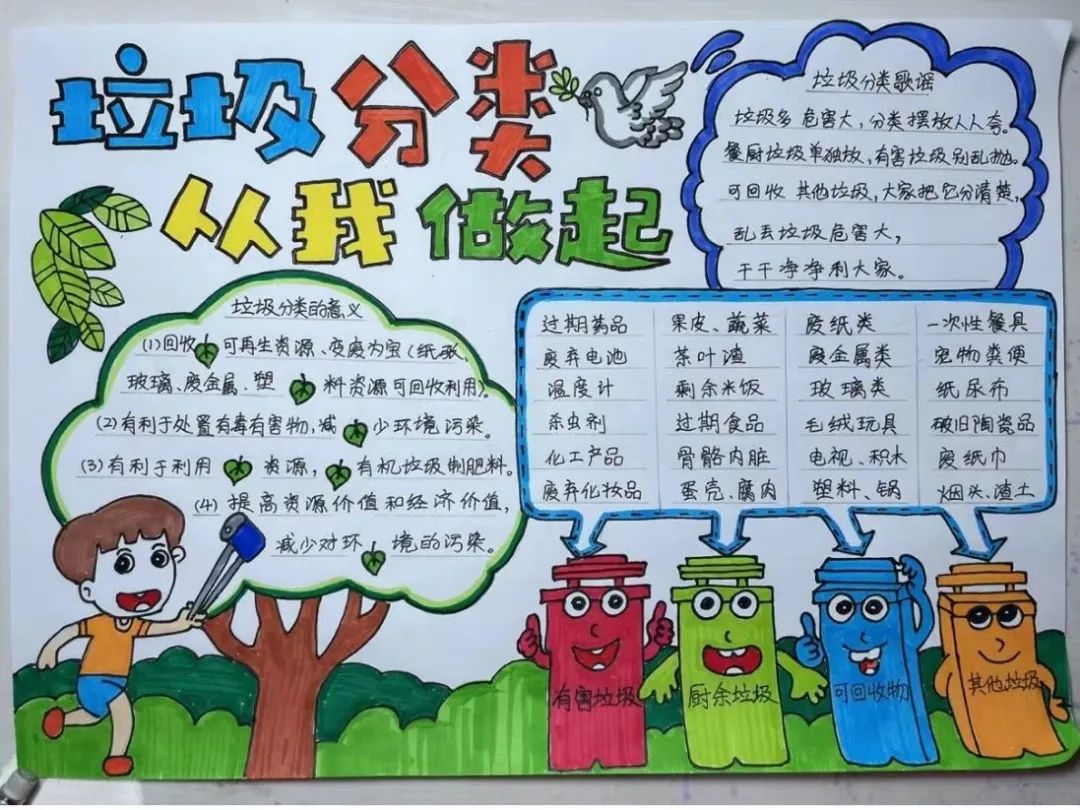 垃圾分类
从我做起
垃圾分类歌谣
垃圾多危害大，分类摆放人人夸。
餐厨垃圾单独放，有害垃圾别乱抛。
可回收 其他垃圾，大家把它分清楚，
乱丢垃圾危害大，
干干净净利大家。
垃圾分类的意义
(1)回收可再生资源、变废为宝(纸张、
玻璃、废金属、塑料资源可回收利用)。
(2)有利于处置有毒有害物，减少环境污染。
(3)有利于利用资源，有机垃圾制肥料。
(4)提高资源价值和经济价值，
减少对环境的污染。
过期药品 果皮、蔬菜 废纸类 一次性餐具
废弃电池 茶叶渣 废金属类 宠物粪便
温度计 剩余米饭 玻璃类 纸尿布
杀虫剂 过期食品 毛绒玩具 破旧陶瓷品
化工产品 骨骼内脏 电视、积木 废纸巾
废弃化妆品 蛋壳、腐肉 塑料、锅 烟头、渣土
有害垃圾 厨余垃圾 可回收物 其他垃圾